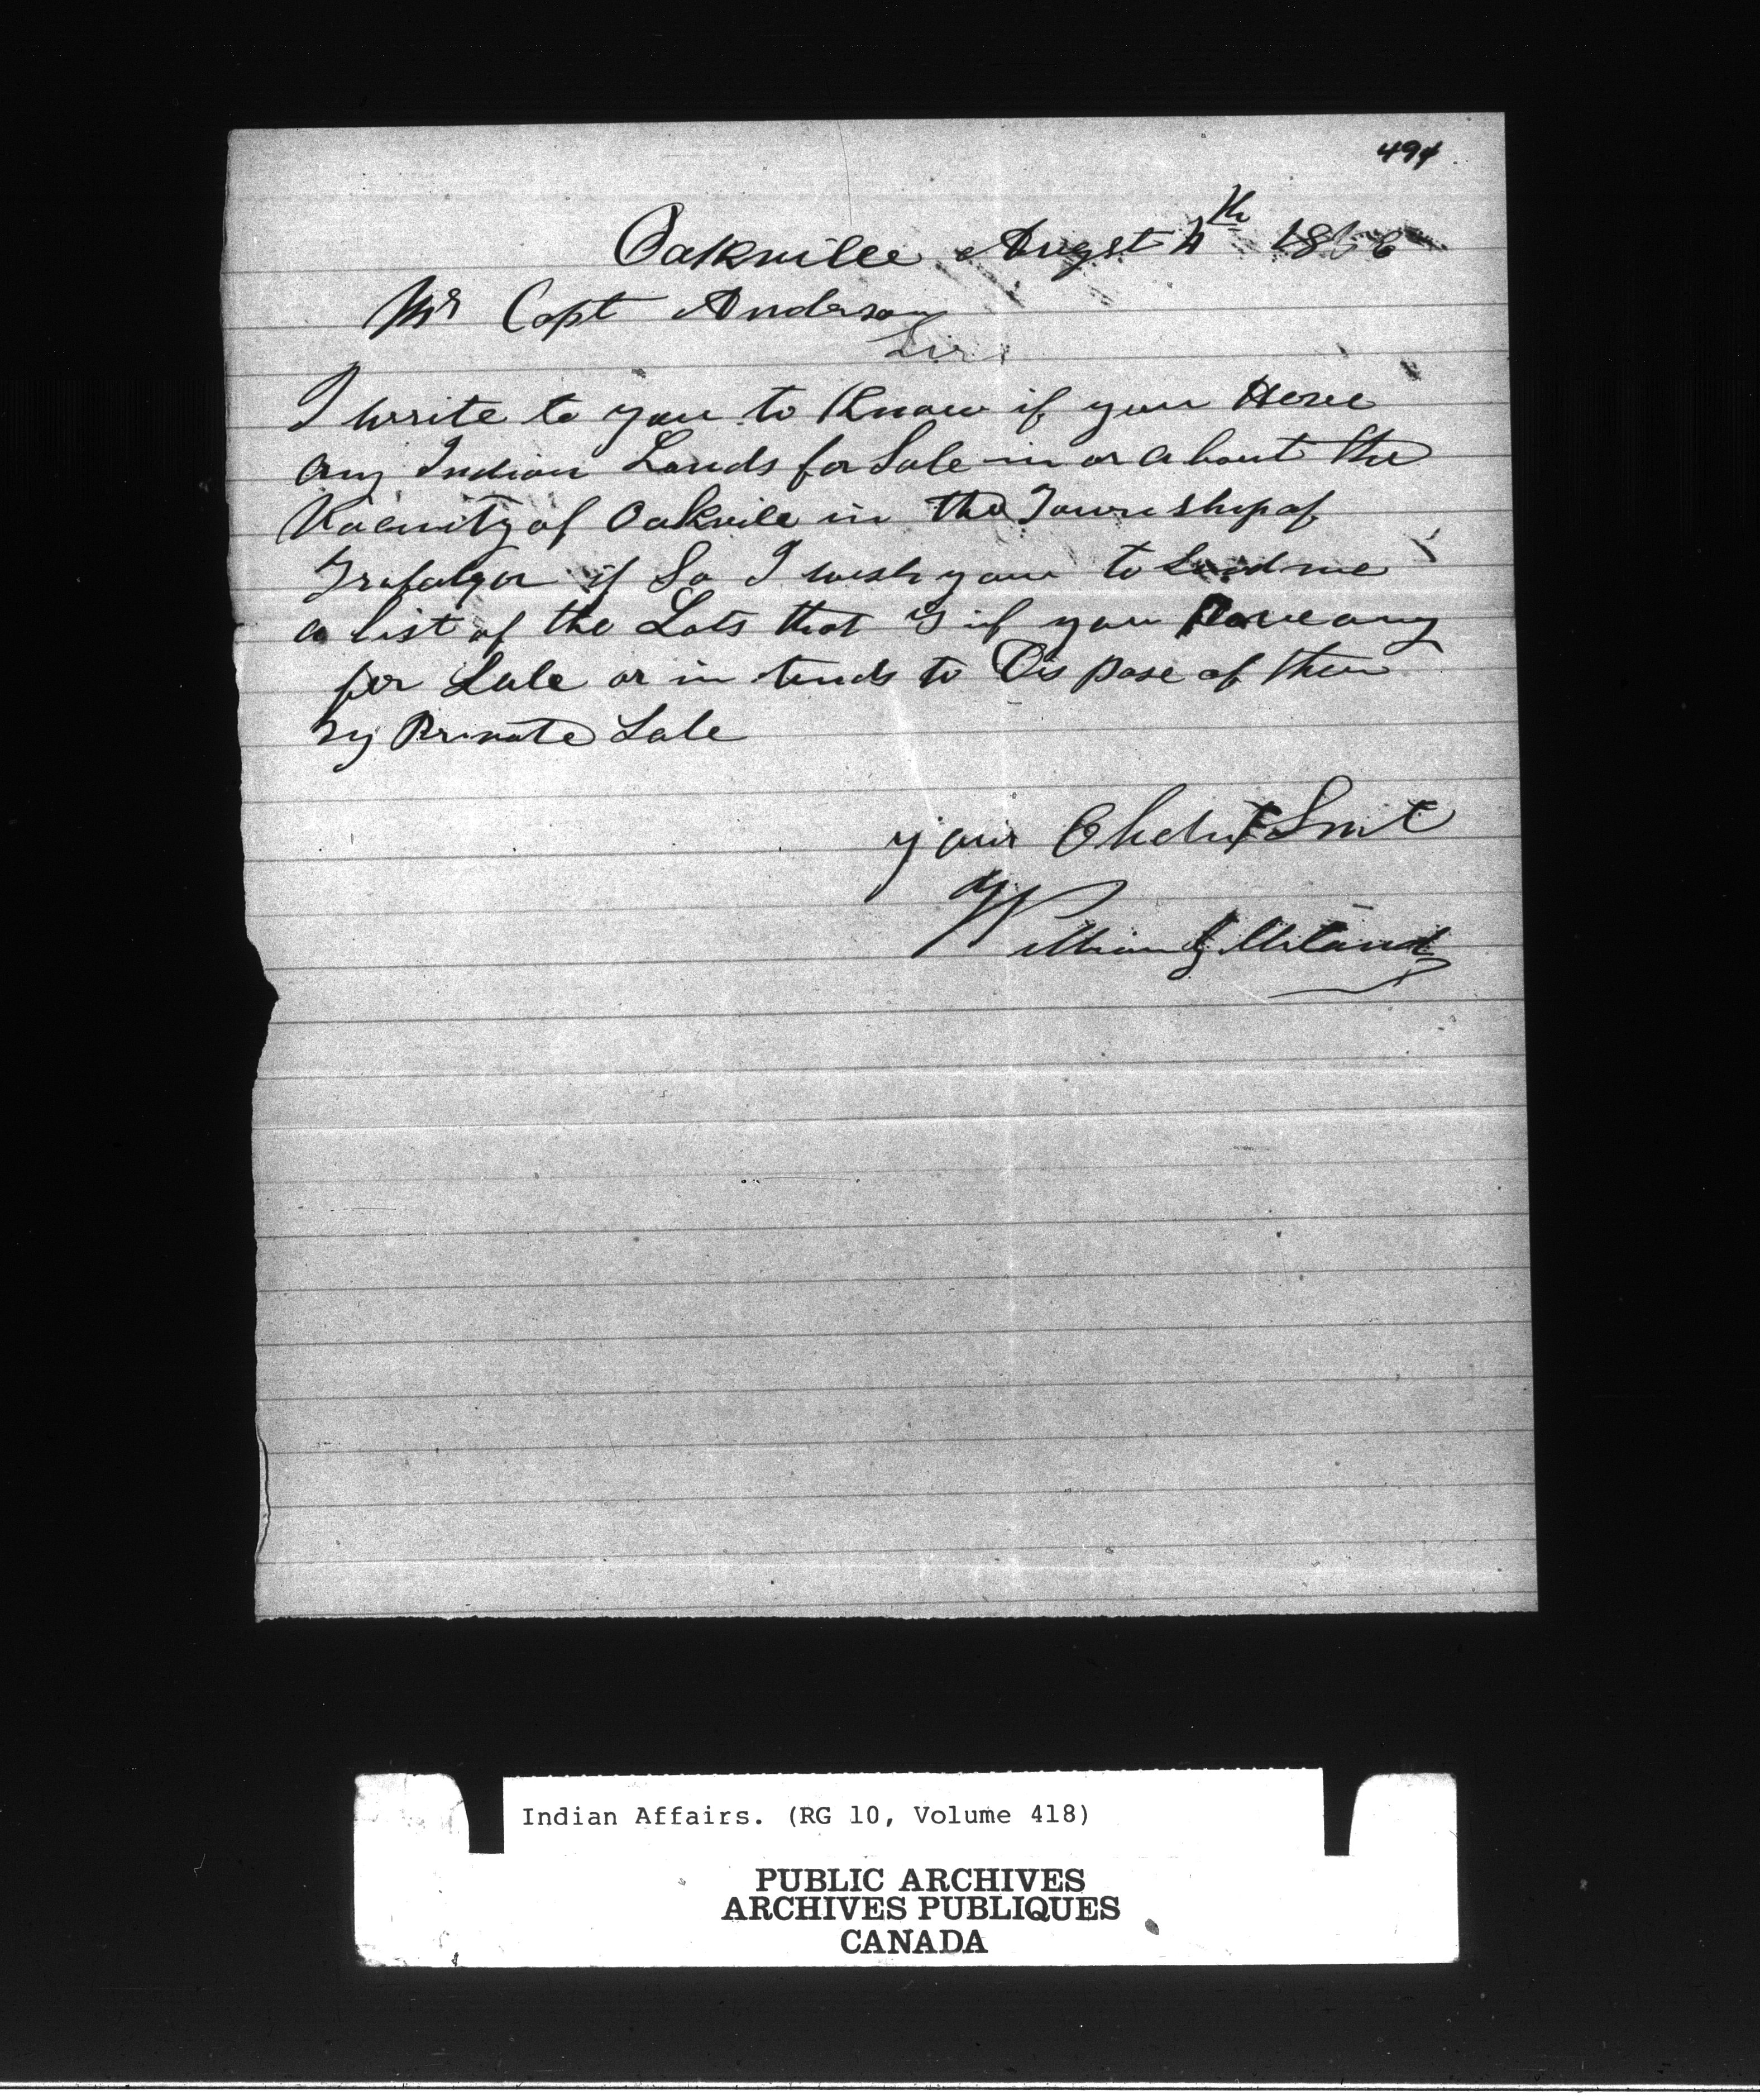 494
Oakville Augst 4th 18
Mr Capt Anderson
Sir
I write to you to Know if you Have
any Indian Lands for Sale in or about the
Vacinity of Oakvile in the Township of
Trafalgar if So I wish you to Send me
a list of the Lots that is if you Have any
for Sale or in tends to Dis pose of them
by Private Sale
your Obednt Srvt
William
Indian Affairs. (RG 10, Volume 418)
PUBLIC ARCHIVES
ARCHIVES PUBLIQUES
CANADA